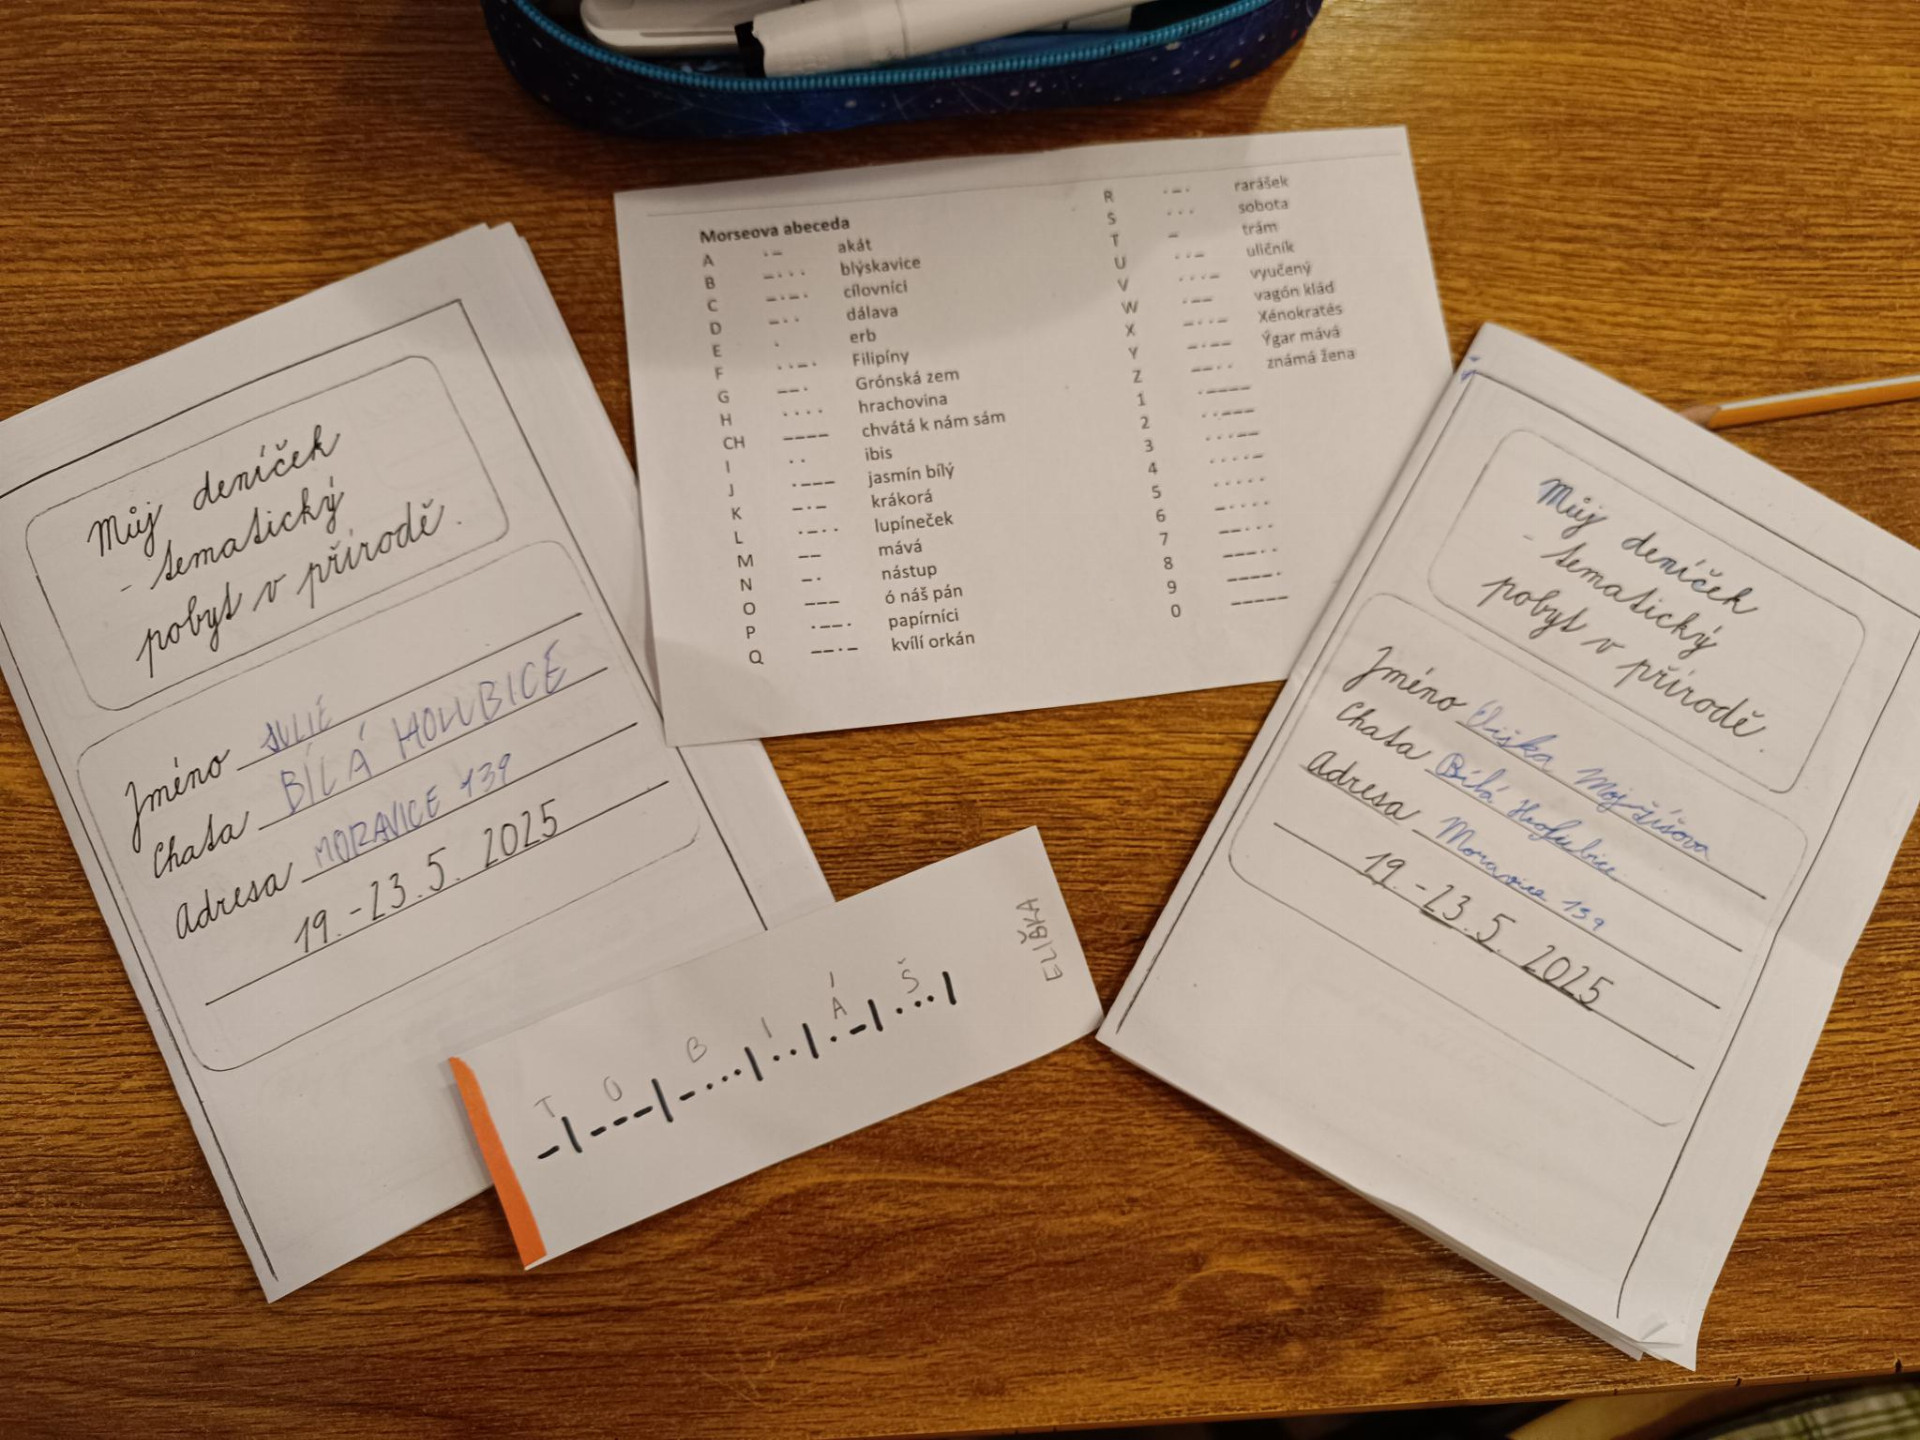 Morseova abeceda
A ·– akát
B –··· blýskavice
C –·–· cílovníci
D –·· dálava
E · erb
F ··–· Filipíny
G ––· Grónská zem
H ···· hrachovina
CH –––– chvátá k nám sám
I ·· ibis
J ·––– jasmín bílý
K –·– krákorá
L ·–·· lupíneček
M –– mává
N –· nástup
O ––– ó náš pán
P ·––· papírníci
Q ––·– kvílí orkán
R ·–· rarášek
S ··· sobota
T – trám
U ··– uličník
V ···– vyučený
W ·–– vagón klád
X –··– Xénokratés
Y –·–– Ýgar mává
Z ––·· známá žena
1 ·––––
2 ··–––
3 ···––
4 ····–
5 ·····
6 –····
7 ––···
8 –––··
9 ––––·
0 –––––
Můj deníček
- tematický
pobyt v přírodě.
Jméno JULIE
Chata BÍLÁ HOLUBICE
Adresa MORAVICE 139
19.-23.5. 2025
Můj deníček
- tematický
pobyt v přírodě.
Jméno Eliška Mojžíšova
Chata Bílá Holubice
Adresa Moravice 139
19.-23.5. 2025
T O B I Á Š
–|–––|–···|··|·–|···|
ELIŠKA